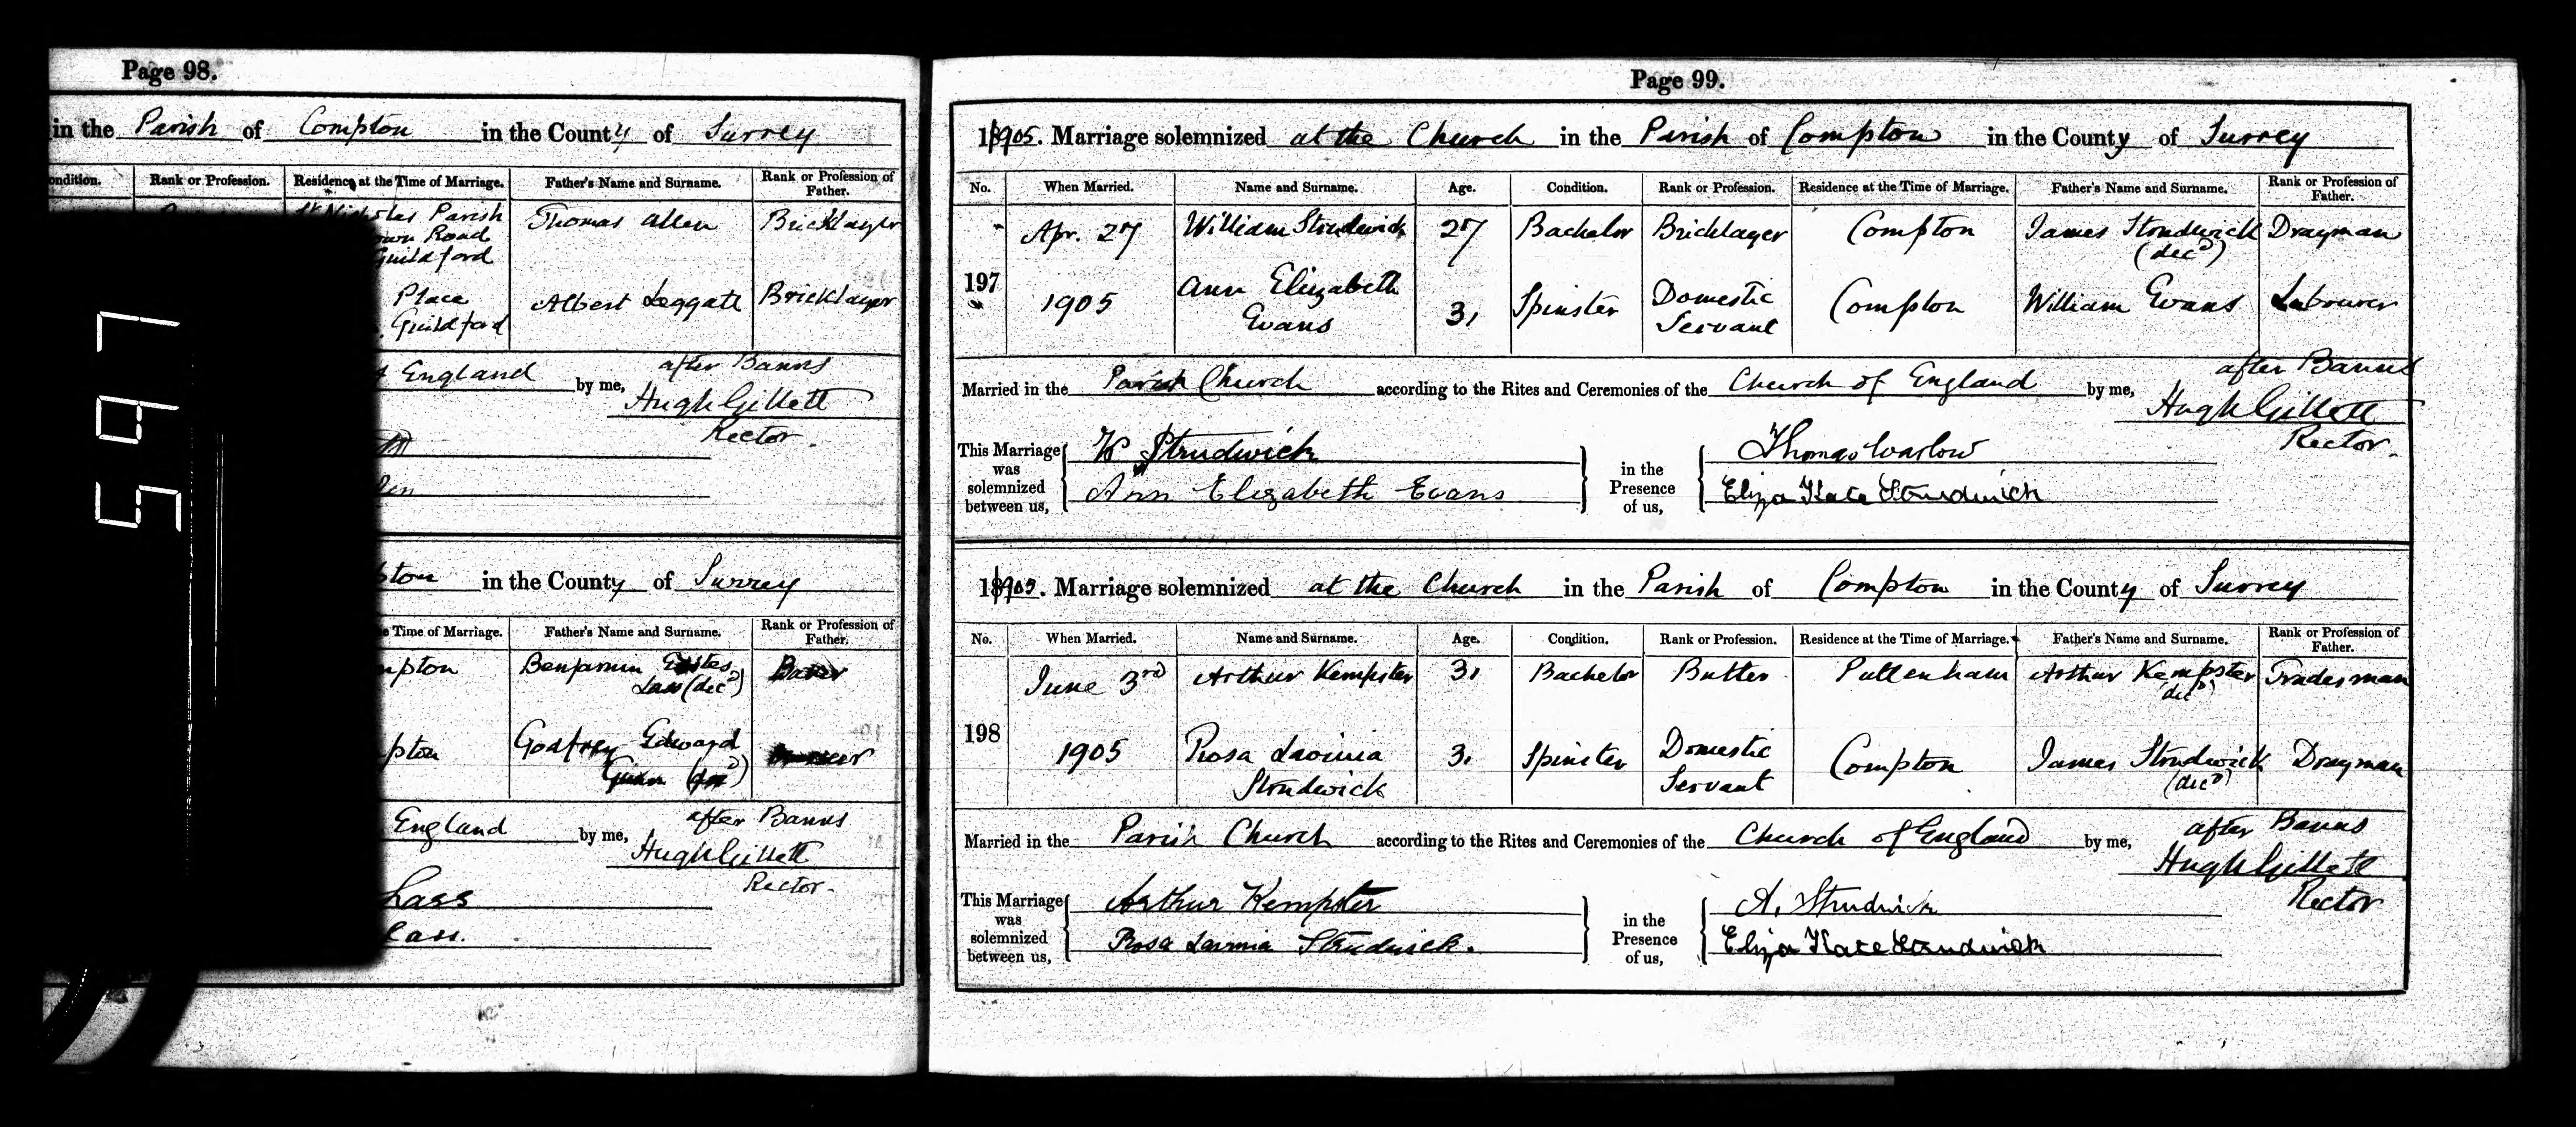 Page 98.
in the Parish of Compton in the County of Surrey
ondition. Rank or Profession. Residence at the Time of Marriage. Father's Name and Surname. Rank or Profession of Father.
St Nicholas Parish
own Road
Guildford
Thomas Allen Bricklayer
Place
Guildford
Albert Leggatt Bricklayer
England by me, after Banns
Hugh Gillett
Rector.
pton in the County of Surrey
e Time of Marriage. Father's Name and Surname. Rank or Profession of Father.
mpton Benjamin
Lass (decd)
pton Godfrey Edward
England by me, after Banns
Hugh Gillett
Rector.
Lass
Lass.
597
Page 99.
1905. Marriage solemnized at the Church in the Parish of Compton in the County of Surrey
No. When Married. Name and Surname. Age. Condition. Rank or Profession. Residence at the Time of Marriage. Father's Name and Surname. Rank or Profession of Father.
197
Apr. 27 William Strudwick 27 Bachelor Bricklayer Compton James Strudwick (decd) Drayman
1905 Ann Elizabeth Evans 31 Spinster Domestic Servant Compton William Evans Labourer
Married in the Parish Church according to the Rites and Ceremonies of the Church of England by me, after Banns
Hugh Gillett
Rector.
This Marriage was solemnized between us, W Strudwick
Ann Elizabeth Evans
in the Presence of us, Thomas Warlow
Eliza Kate Strudwick
1905. Marriage solemnized at the Church in the Parish of Compton in the County of Surrey
No. When Married. Name and Surname. Age. Condition. Rank or Profession. Residence at the Time of Marriage. Father's Name and Surname. Rank or Profession of Father.
198
June 3rd Arthur Kempster 31 Bachelor Butler Puttenham Arthur Kempster decd Tradesman
1905 Rosa Lavinia Strudwick 31 Spinster Domestic Servant Compton James Strudwick (decd) Drayman
Married in the Parish Church according to the Rites and Ceremonies of the Church of England by me, after Banns
Hugh Gillett
Rector
This Marriage was solemnized between us, Arthur Kempster
Rosa Lavinia Strudwick.
in the Presence of us, A. Strudwick
Eliza Kate Strudwick